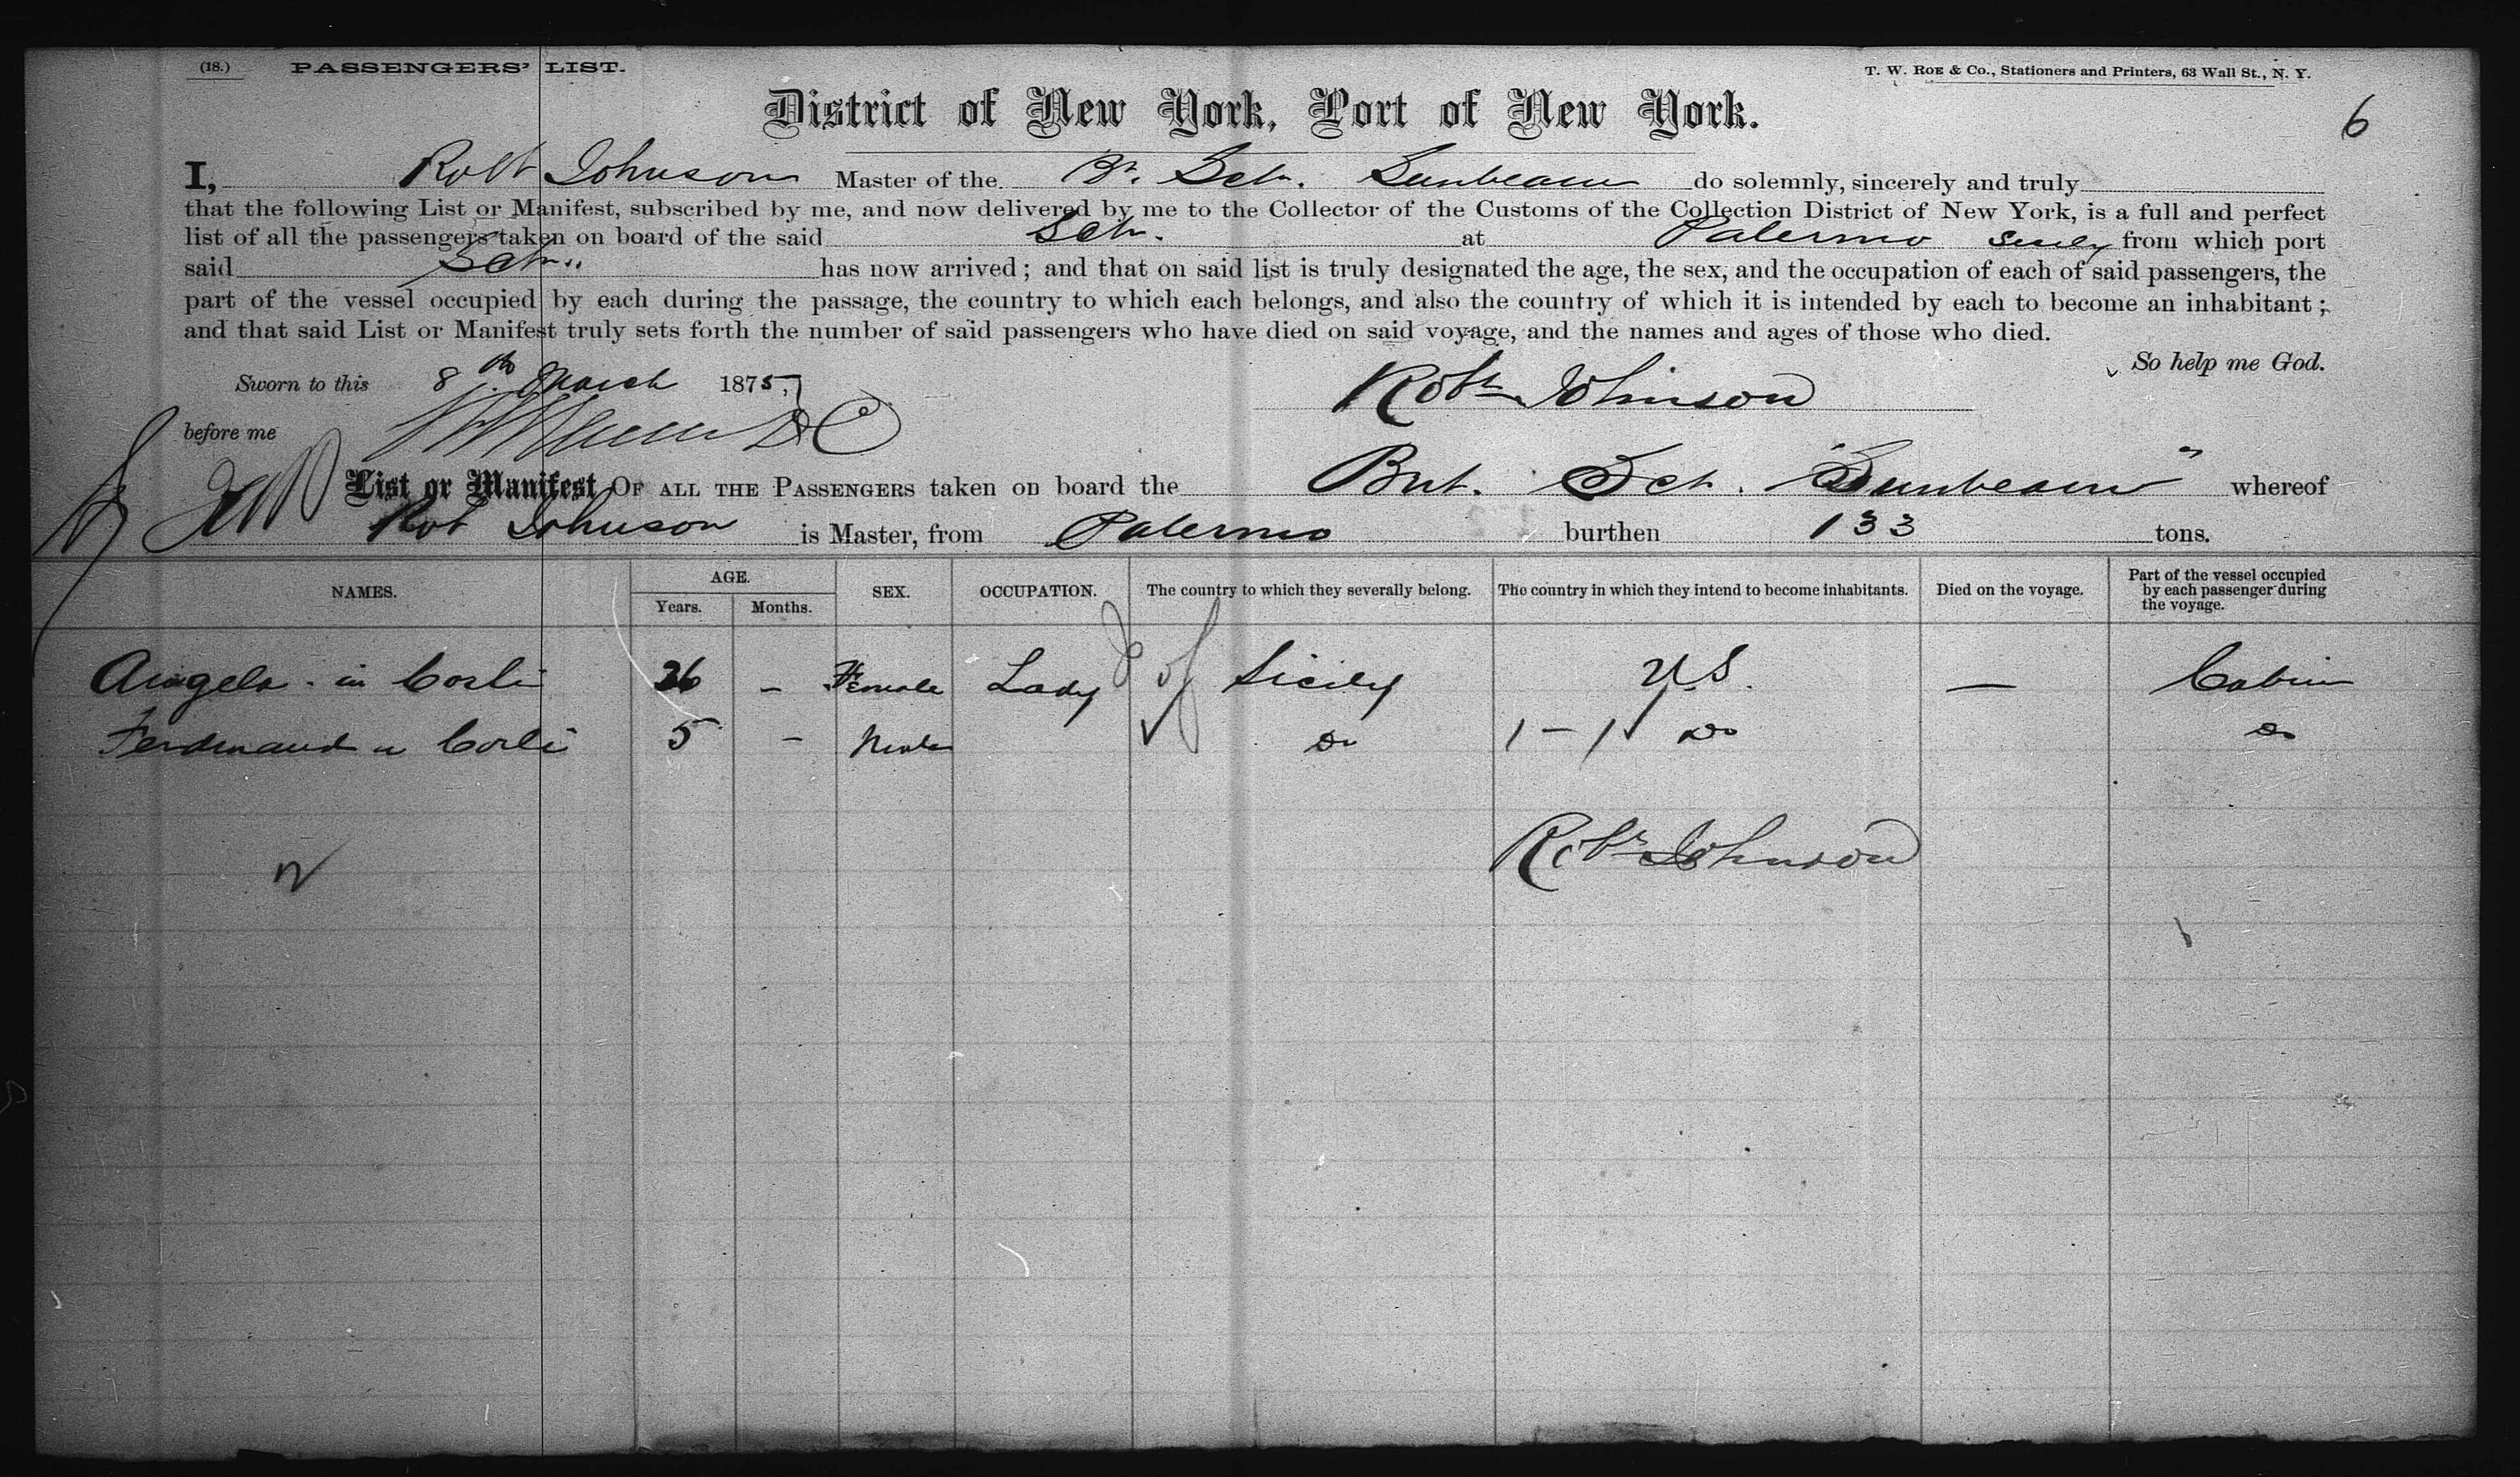 (18.) PASSENGERS' LIST.
T. W. ROE & Co., Stationers and Printers, 63 Wall St., N. Y.
District of New York, Port of New York.
6
I, Robt Johnson Master of the Bt. Sch. Sunbeam do solemnly, sincerely and truly
that the following List or Manifest, subscribed by me, and now delivered by me to the Collector of the Customs of the Collection District of New York, is a full and perfect
list of all the passengers taken on board of the said Schr. at Palermo Sicily from which port
said Schr. has now arrived; and that on said list is truly designated the age, the sex, and the occupation of each of said passengers, the
part of the vessel occupied by each during the passage, the country to which each belongs, and also the country of which it is intended by each to become an inhabitant;
and that said List or Manifest truly sets forth the number of said passengers who have died on said voyage, and the names and ages of those who died.
So help me God.
Sworn to this 8th March 1875,
Robt Johnson
before me DC
List or Manifest OF ALL THE PASSENGERS taken on board the Brit. Sch. "Sunbeam" whereof
Rob Johnson is Master, from Palermo burthen 133 tons.
NAMES. AGE. Years. Months. SEX. OCCUPATION. The country to which they severally belong. The country in which they intend to become inhabitants. Died on the voyage. Part of the vessel occupied by each passenger during the voyage.
Angelo in Corli 26 - Female Lady Sicily U.S. — Cabin
Ferdinand in Corli 5 - Male Do 1 - 1 Do Do
Robt Johnson